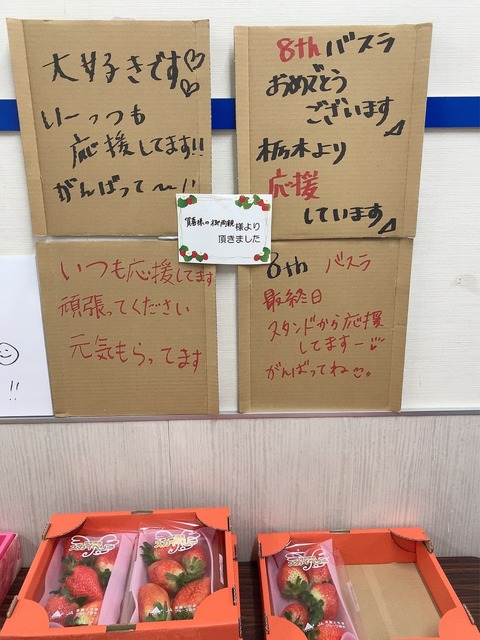 大好きです♡♡
いーっつも
応援してます!!
がんばって〜!!
8thバスラ
おめでとう
ございます
栃木より
応援
しています
賀喜様の御両親様より
頂きました
いつも応援してます
頑張ってください
元気もらってます
8th バスラ
最終日
スタンドから応援
してますー
がんばってね
!!
JA